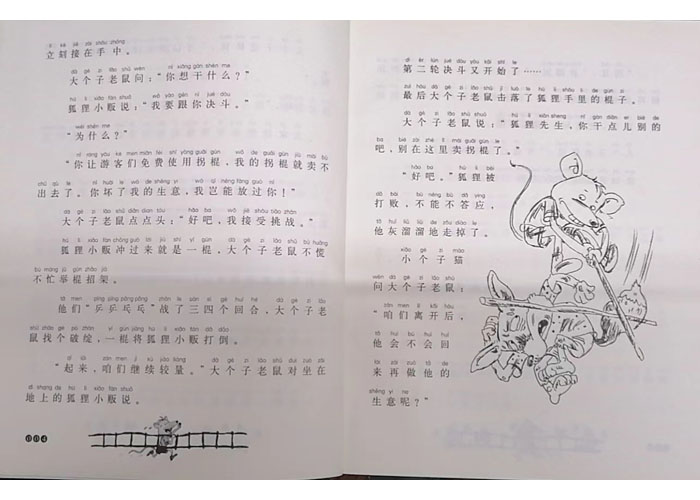 立刻接在手中。
大个子老鼠问：“你想干什么？”
狐狸小贩说：“我要跟你决斗。”
“为什么？”
“你让游客们免费使用拐棍，我的拐棍就卖不
出去了。你坏了我的生意，我岂能放过你！”
大个子老鼠点点头：“好吧，我接受挑战。”
狐狸小贩冲过来就是一棍，大个子老鼠不慌
不忙举棍招架。
他们“乒乒乓乓”战了三四个回合，大个子老
鼠找个破绽，一棍将狐狸小贩打倒。
“起来，咱们继续较量。”大个子老鼠对坐在
地上的狐狸小贩说。
004
第二轮决斗又开始了……
最后大个子老鼠击落了狐狸手里的棍子。
大个子老鼠说：“狐狸先生，你干点儿别的
吧，别在这里卖拐棍了。”
“好吧。”狐狸被
打败，不能不答应，
他灰溜溜地走掉了。
小个子猫
问大个子老鼠：
“咱们离开后，
他会不会回
来再做他的
生意呢？”